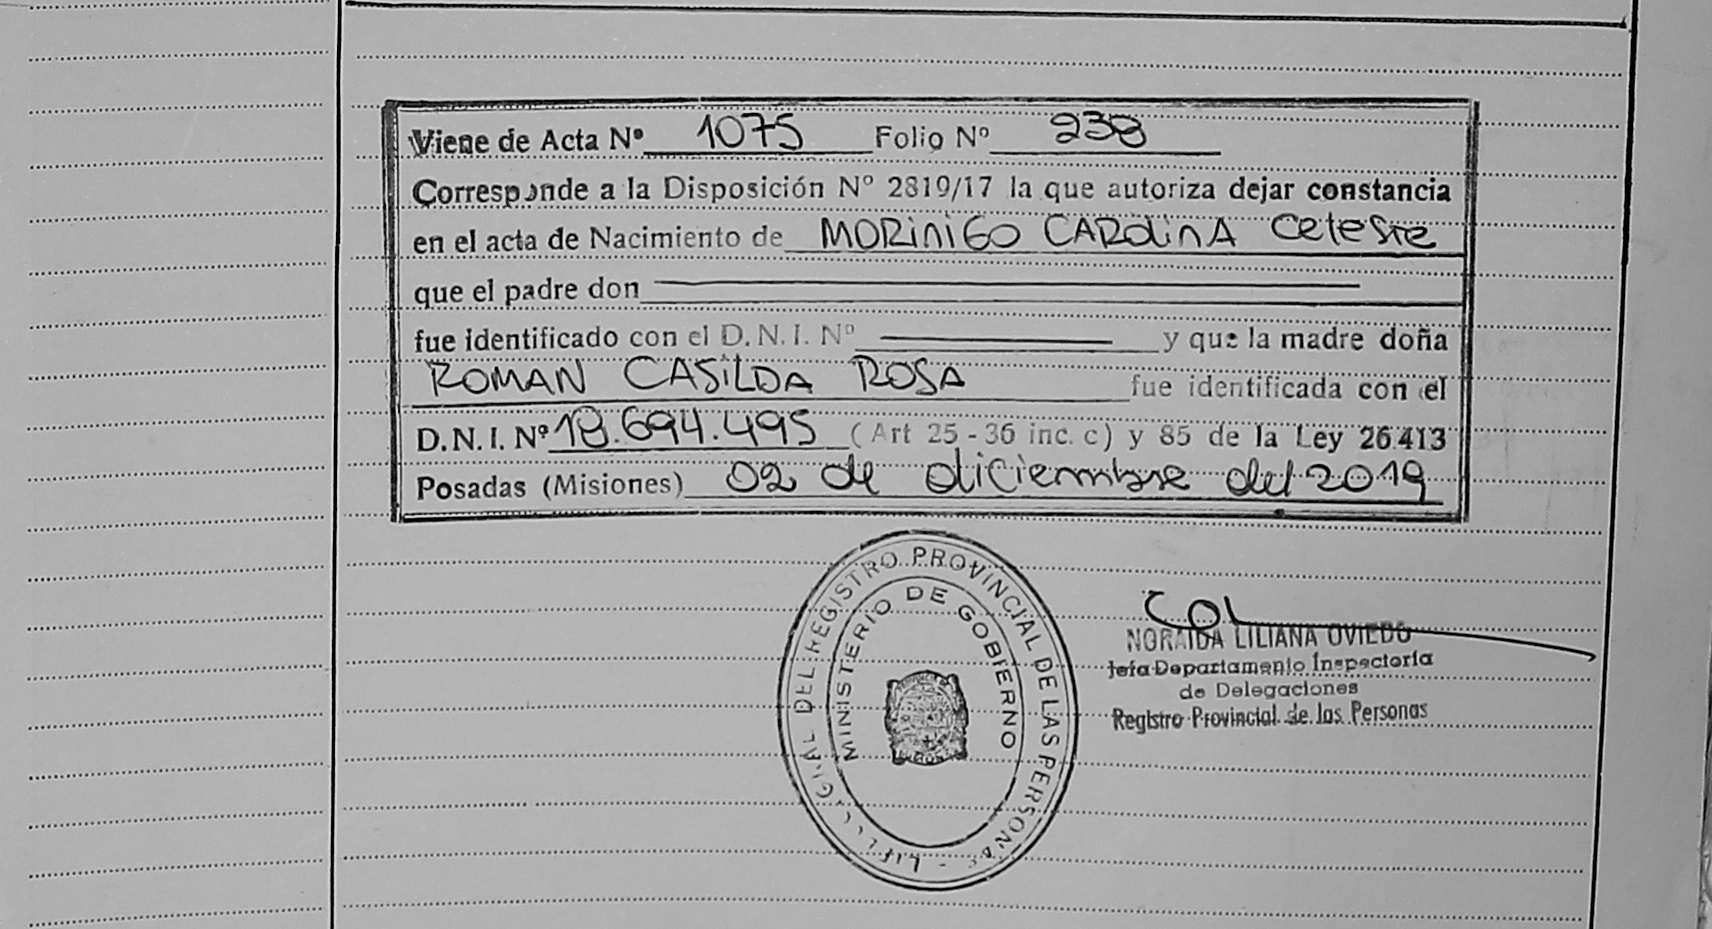 Viene de Acta Nº 1075 Folio Nº 238
Corresponde a la Disposición Nº 2819/17 la que autoriza dejar constancia
en el acta de Nacimiento de MORINIGO CAROLINA Celeste
que el padre don
fue identificado con el D.N.I. Nº y que la madre doña
ROMAN CASILDA ROSA fue identificada con el
D.N.I. Nº 18.694.495 (Art 25-36 inc. c) y 85 de la Ley 26.413
Posadas (Misiones) 02 de diciembre del 2019
DEL REGISTRO PROVINCIAL DE LAS PERSONAS
MINISTERIO DE GOBIERNO
NORAIDA LILIANA OVIEDO
Jefa Departamento Inspectoría
de Delegaciones
Registro Provincial de las Personas